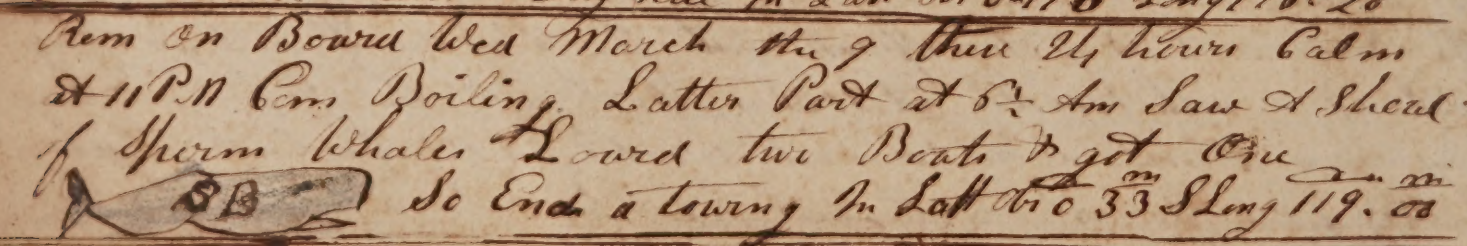 Rem on Board Wed March the 9 these 24 hours Calm
at 11 P.M Com Boiling Latter Part at 6 Am Saw A Shoal
of Sperm Whales & Lowred two Boats & got One
SB So Ends a towing In Latt 0 33 S Long 119. 00